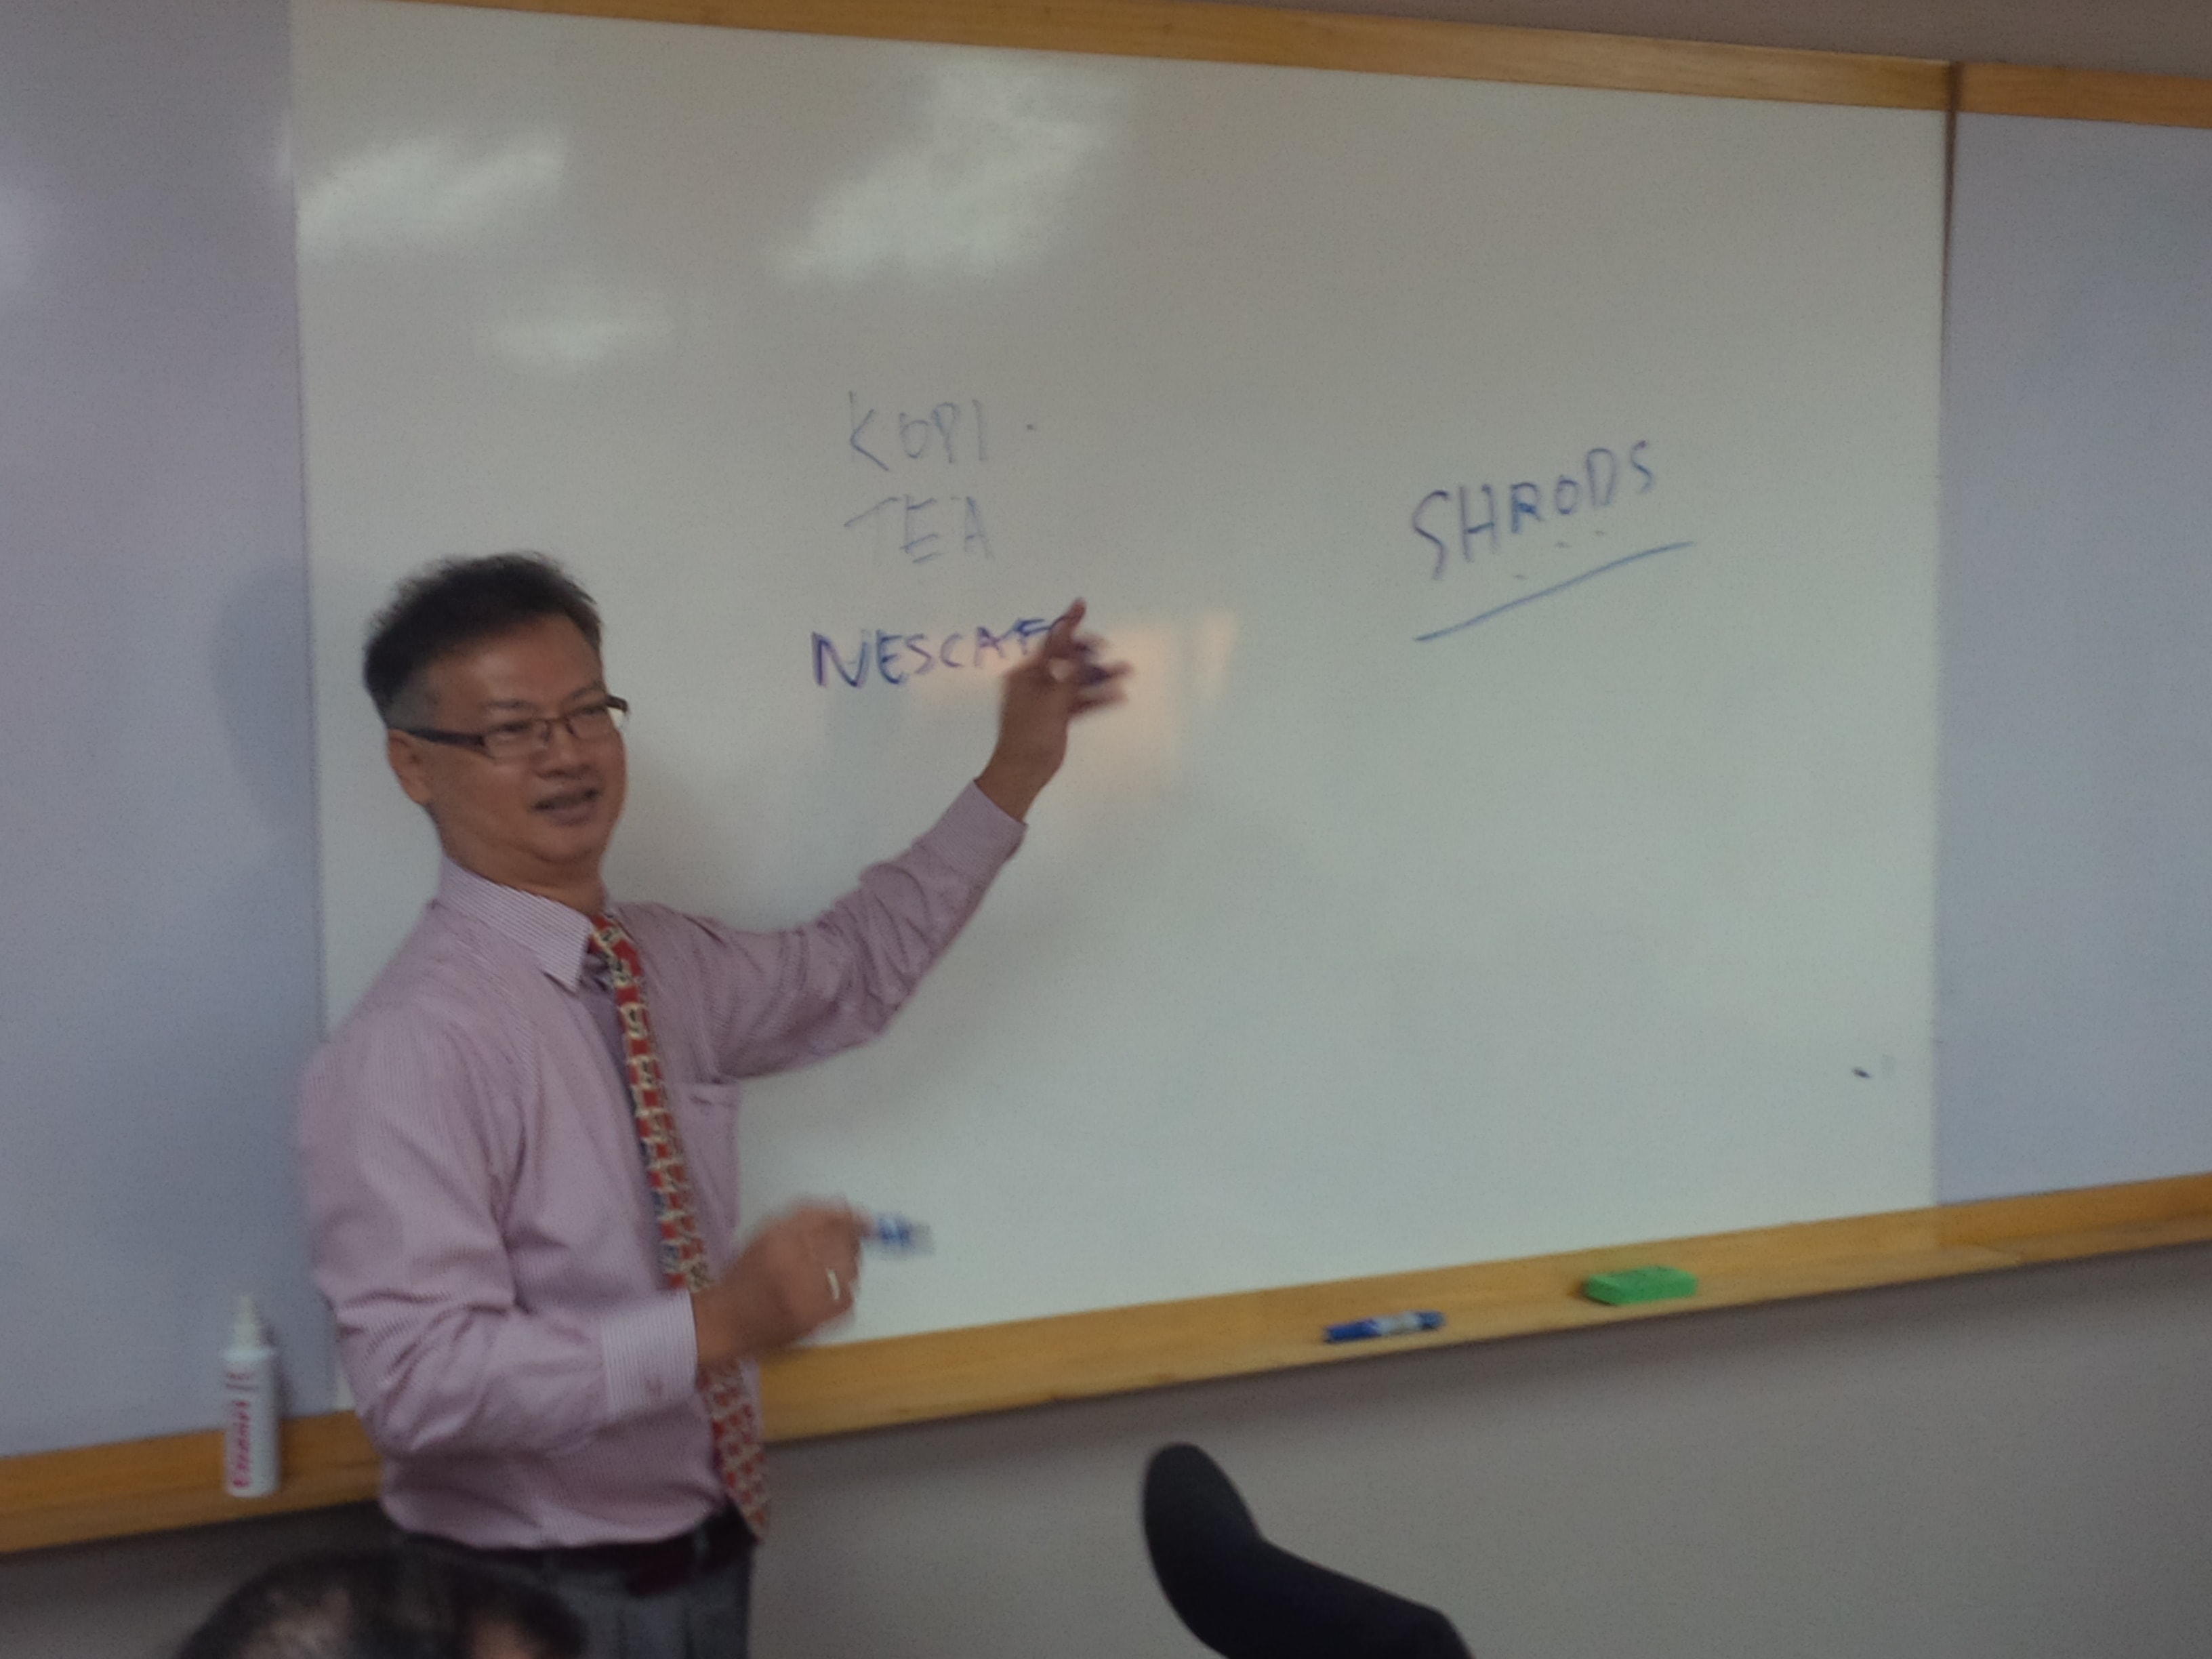 KOPI
TEA
NESCAF
SHRODS